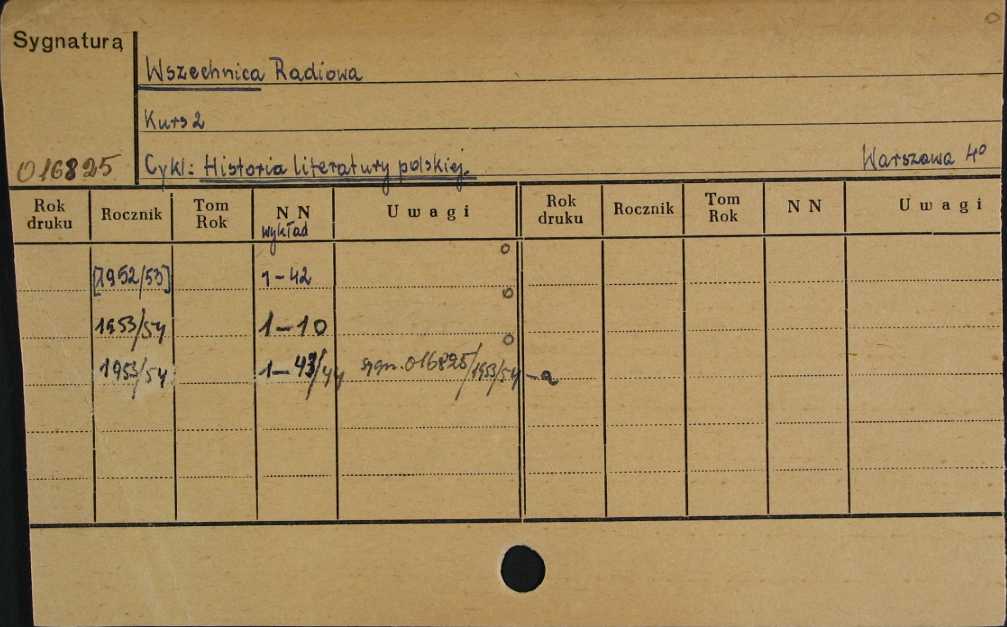 Sygnatura
Wszechnica Radiowa
Kurs 2
016825
Cykl: Historia literatury polskiej.
Warszawa 4°
Rok druku Rocznik Tom Rok N N wykład Uwagi Rok druku Rocznik Tom Rok N N Uwagi
[1952/53] 1-42
1953/54 1-10
1953/54 1-43/44 sygn. 016825/1953/54-a